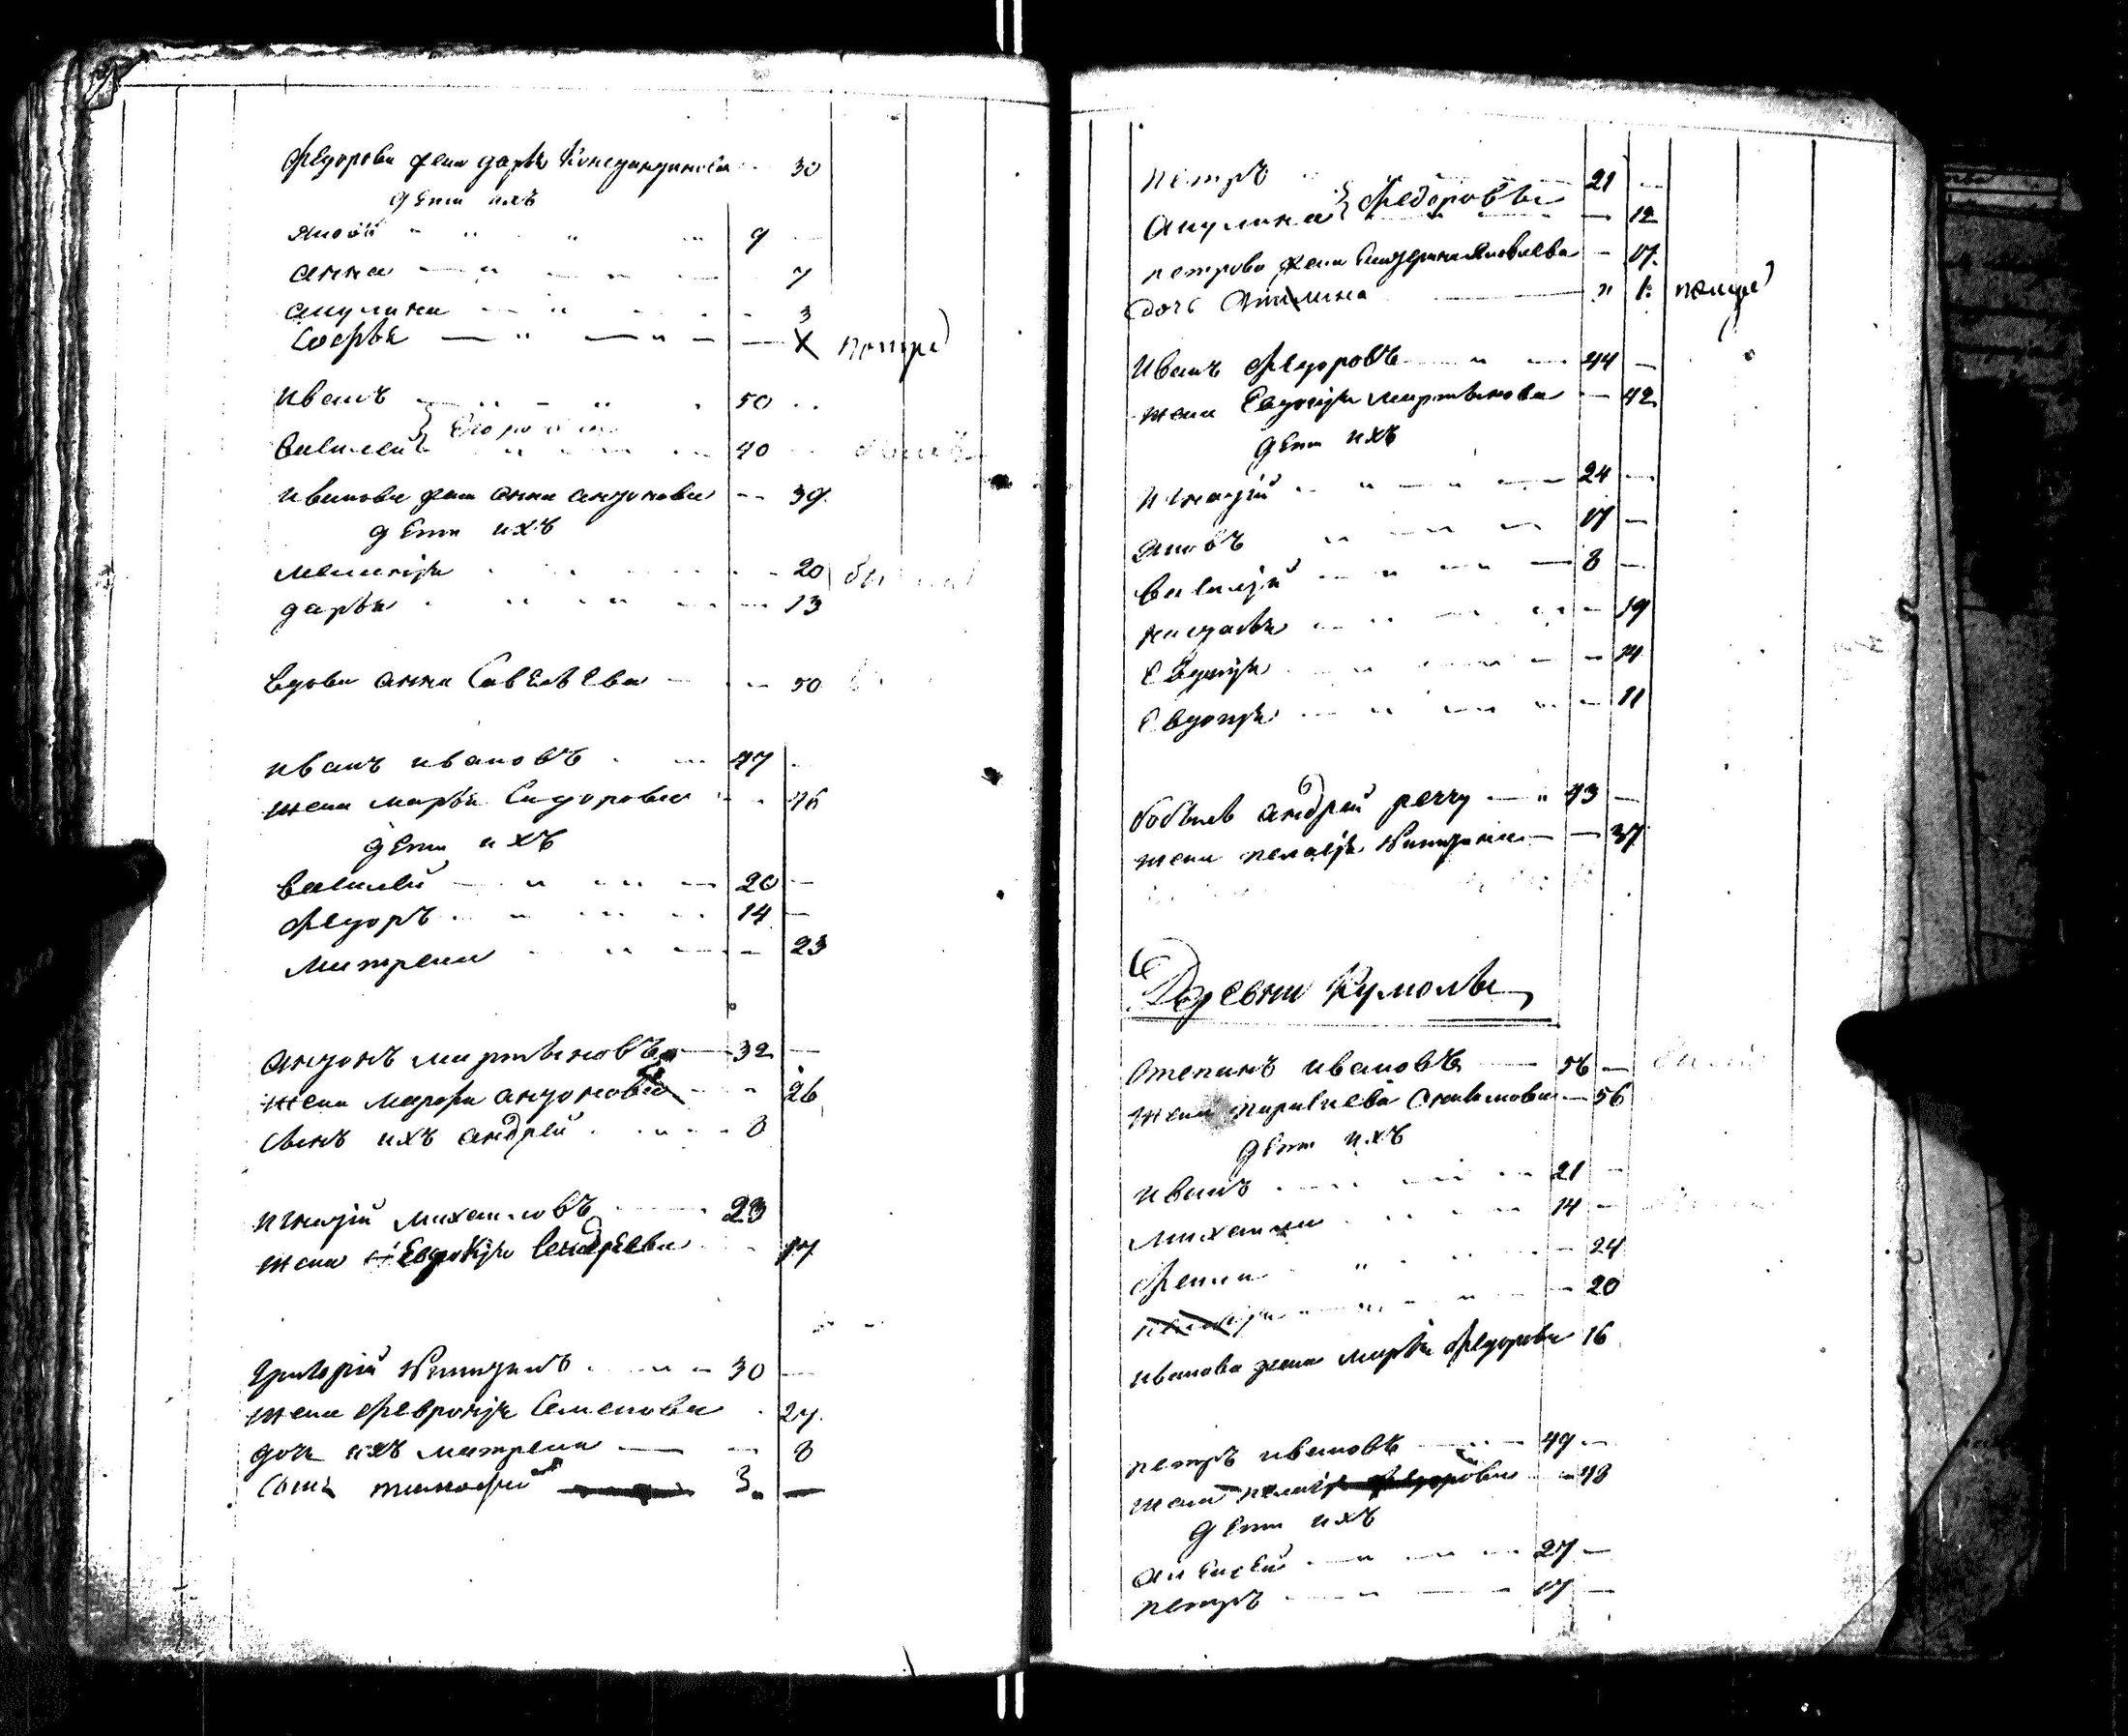 Федорова жена дарья Констандинова 30
дети ихъ
Яковъ 9
анна 7
акулина 3
Софья X помре
Иванъ 50
Василей 40
Ивановы жена анна андонова 39
дети ихъ
20
дарья 13
вдова анна Савельева 50
иванъ ивановъ 47
жена марья Сидорова 46
дети ихъ
Василей 20
Федоръ 14
Матрена 23
андонъ мартыновъ 32
жена Марфа андонова 26
сынъ ихъ андрей 8
игнадiй михаиловъ 23
жена Евдокiя андреева 17
Григорiй Никидинъ 30
жена Февронiя Семенова 27
дочь ихъ матрена 8
Сынъ тимофей 3
петръ 21
акулина } Федоровы 12
петрова жена Яковлева 17
дочь 1 помре
Иванъ Федоровъ 44
жена Евдокiя мартынова 42
дети ихъ
Игнадiй 24
Яковъ 17
Василiй 8
наталья 19
Евдокiя 14
Евдокiя 11
бобыль андрей 43
жена пелагiя Никидина 37
Деревни Кумолы
Степанъ ивановъ 56
жена 56
дети ихъ
иванъ 21
михаила 14
24
20
иванова жена марья Федорова 16
петръ ивановъ 49
жена пелагiя Федорова 48
дети ихъ
алексей 27
петръ 17